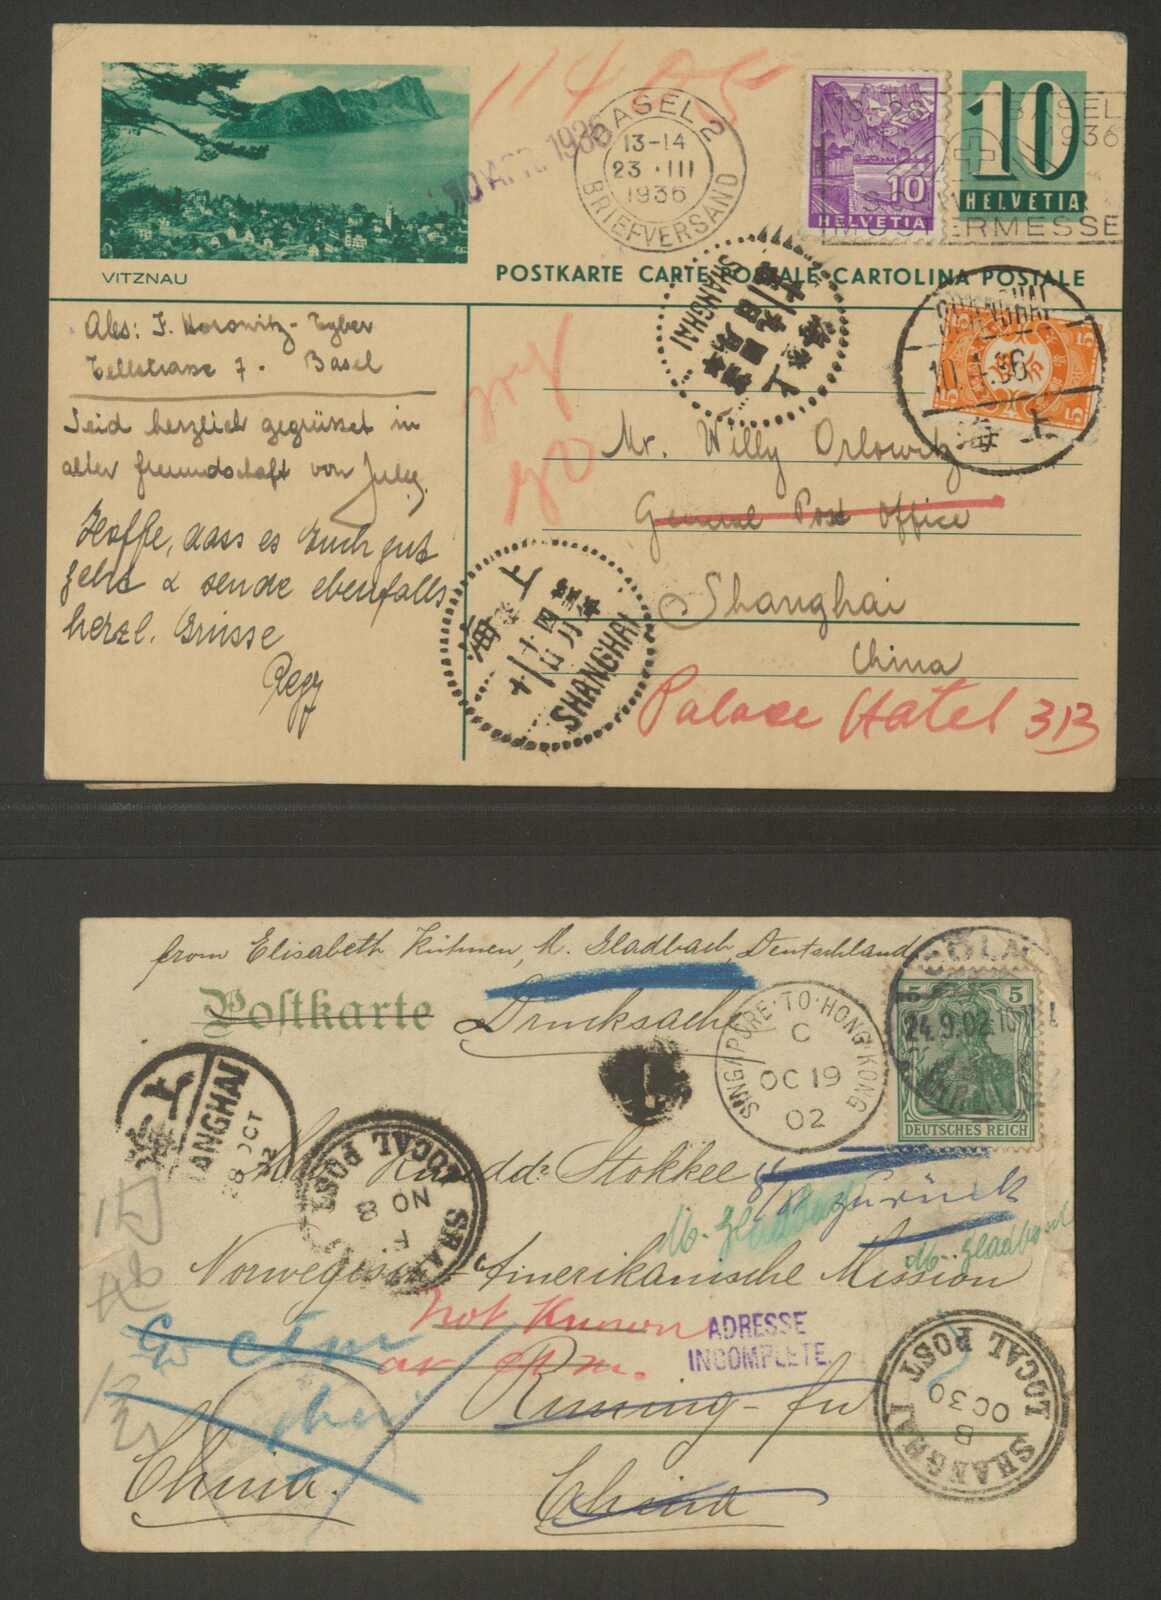 1405
BASEL 2
13-14
23.III
1936
BRIEFVERSAND
10 APR 1936
10
HELVETIA
10
HELVETIA
BASEL
1936
MUSTERMESSE
VITZNAU
POSTKARTE CARTE POSTALE CARTOLINA POSTALE
SHANGHAI
SHANGHAI
10.4.36
海上
5 5
5 5
Abs: F. Horowitz-Tyber
Tellstrasse 7. Basel
Seid herzlich gegrüsst in
alter Freundschaft von July.
Hoffe, dass es Euch gut
geht & sende ebenfalls
herzl. Grüsse
Regy
Mr. Willy Orlowitz
General Post Office
Shanghai
China
Palace Hotel 313
海 上
SHANGHAI
from Elisabeth Kühnen, M. Gladbach, Deutschland
Postkarte
Drucksache
SINGAPORE·TO·HONG KONG
C
OC 19
02
24.9.02
5 5
DEUTSCHES REICH
海上
SHANGHAI
28 OCT
02
SHANGHAI LOCAL POST
F
NO 8
1
Stokkee
zurück
M. Gladbach
M. Gladbach
Norwegisch-Amerikanische Mission
not known
ADRESSE
INCOMPLETE
Go CIM
at CIM.
Running-fu
China.
China
SHANGHAI LOCAL POST
B
OC 30